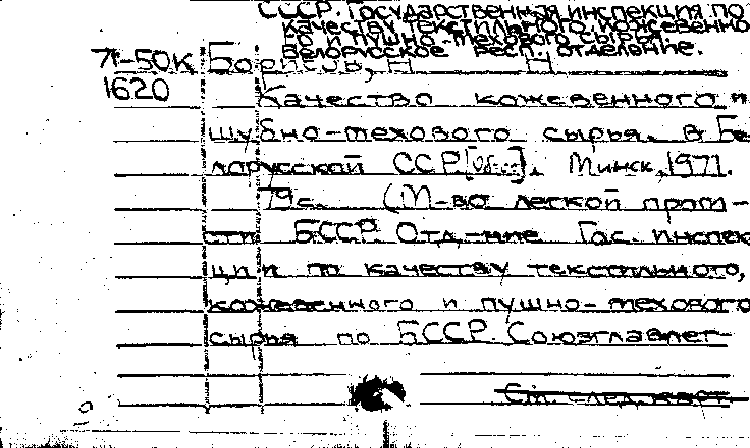 СССР. Государственная инспекция по
качеству текстильного, кожевенно
го и пушно-мехового сырья
Белорусское респ. отделение.
71-50К Борисов, Н Н
1620
Качество кожевенного и
шубно-мехового сырья. в Бе
лорусской ССР. Минск, 1971.
79 с. (М-во легкой пром-
сти БССР. Отд-ние Гос. инспек
ции по качеству текстильного,
кожевенного и пушно-мехового
сырья по БССР. Союзглавлег-
См. след. карт.